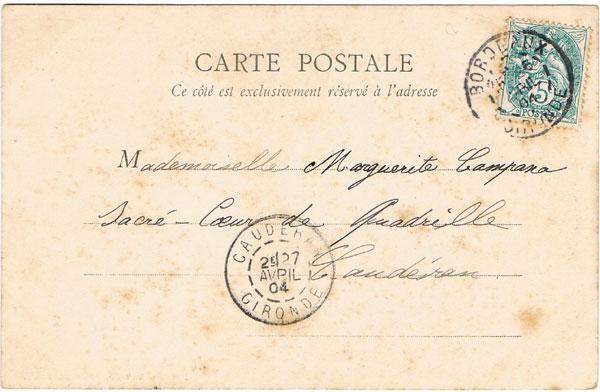 CARTE POSTALE
Ce côté est exclusivement réservé à l'adresse
BORDEAUX
GIRONDE
5
POSTES
Mademoiselle Marguerite Campana
Sacré-Cœur de Quadrille
Caudéran
CAUDERAN
27
AVRIL
04
GIRONDE